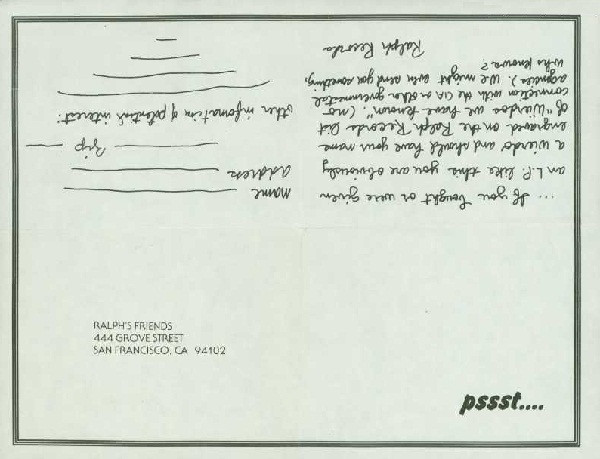 ... If you bought or were given
an L.P. like this you are obviously
a wierdo and should have your name
engraved on the Ralph Records list
of "Wierdos we have known". (no
connection with the CIA or other governmental
agencies). We might even send you something,
who knows?
Ralph Records
name
address
zip
other information of potential interest:
RALPH'S FRIENDS
444 GROVE STREET
SAN FRANCISCO, CA 94102
pssst....